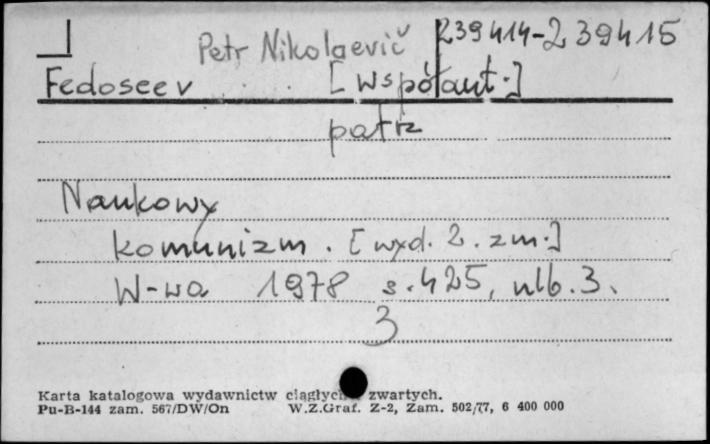 Petr Nikolaevič 239414-239415
Fedoseev [współaut.]
patrz
Naukowy
komunizm. [wyd. 2. zm.]
W-wa 1978 s. 425, nlb. 3.
3
Karta katalogowa wydawnictw ciągłych zwartych.
Pu-B-144 zam. 567/DW/On W.Z.Graf. Z-2, Zam. 502/77, 6 400 000